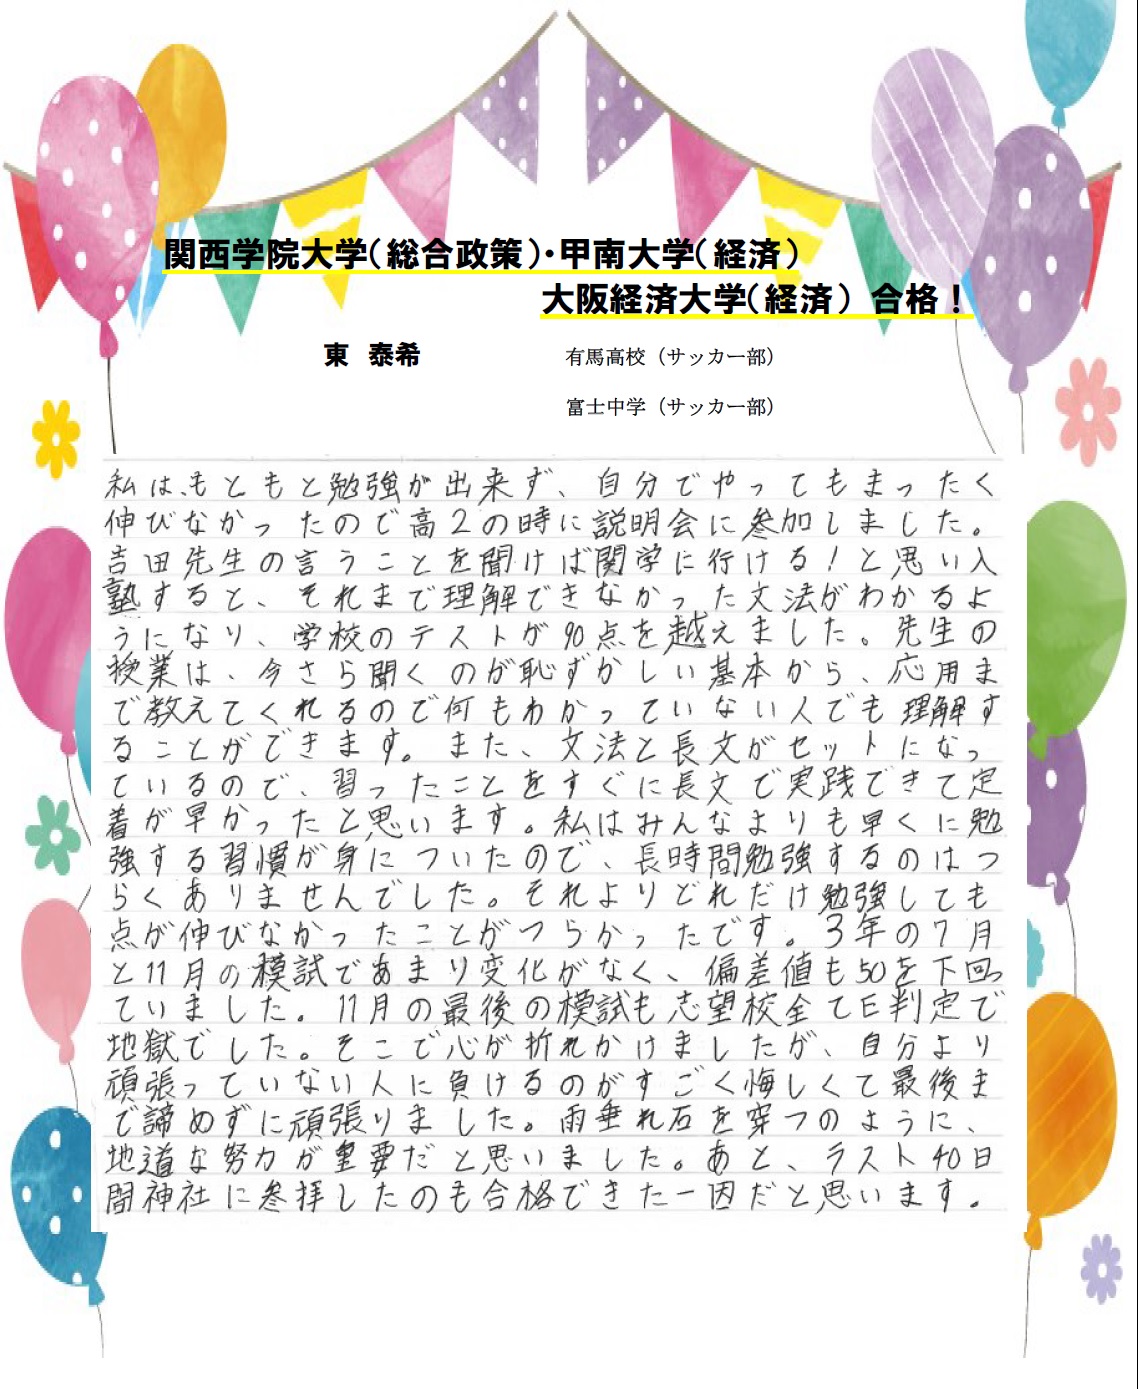 関西学院大学（総合政策）・甲南大学（経済）
大阪経済大学（経済） 合格！
東 泰希
有馬高校（サッカー部）
富士中学（サッカー部）
私は、もともと勉強が出来ず、自分でやってもまったく
伸びなかったので高2の時に説明会に参加しました。
吉田先生の言うことを聞けば関学に行ける！と思い入
塾すると、それまで理解できなかった文法がわかるよ
うになり、学校のテストが90点を越えました。先生の
授業は、今さら聞くのが恥ずかしい基本から、応用ま
で教えてくれるので何もわかっていない人でも理解す
ることができます。また、文法と長文がセットになっ
ているので、習ったことをすぐに長文で実践できて定
着が早かったと思います。私はみんなよりも早くに勉
強する習慣が身についたので、長時間勉強するのはつ
らくありませんでした。それよりどれだけ勉強しても
点が伸びなかったことがつらかったです。3年の7月
と11月の模試であまり変化がなく、偏差値も50を下回っ
ていました。11月の最後の模試も志望校全てE判定で
地獄でした。そこで心が折れかけましたが、自分より
頑張っていない人に負けるのがすごく悔しくて最後ま
で諦めずに頑張りました。雨垂れ石を穿つのように、
地道な努力が重要だと思いました。あと、ラスト40日
間神社に参拝したのも合格できた一因だと思います。